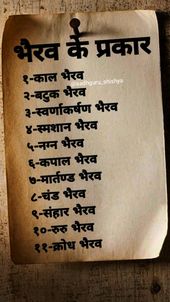 भैरव के प्रकार
@sadhguru_shishya
१-काल भैरव
२-बटुक भैरव
३-स्वर्णाकर्षण भैरव
४-स्मशान भैरव
५-नग्न भैरव
६-कपाल भैरव
७-मार्तण्ड भैरव
८-चंड भैरव
९-संहार भैरव
१०-रुरु भैरव
११-क्रोध भैरव